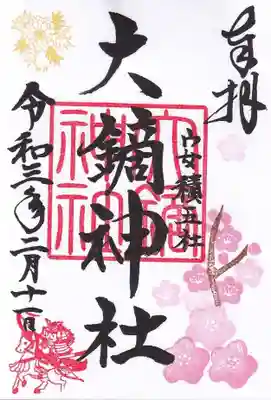 奉拝
安積五社
大鏑神社
令和三年二月十一日
大鏑
神社